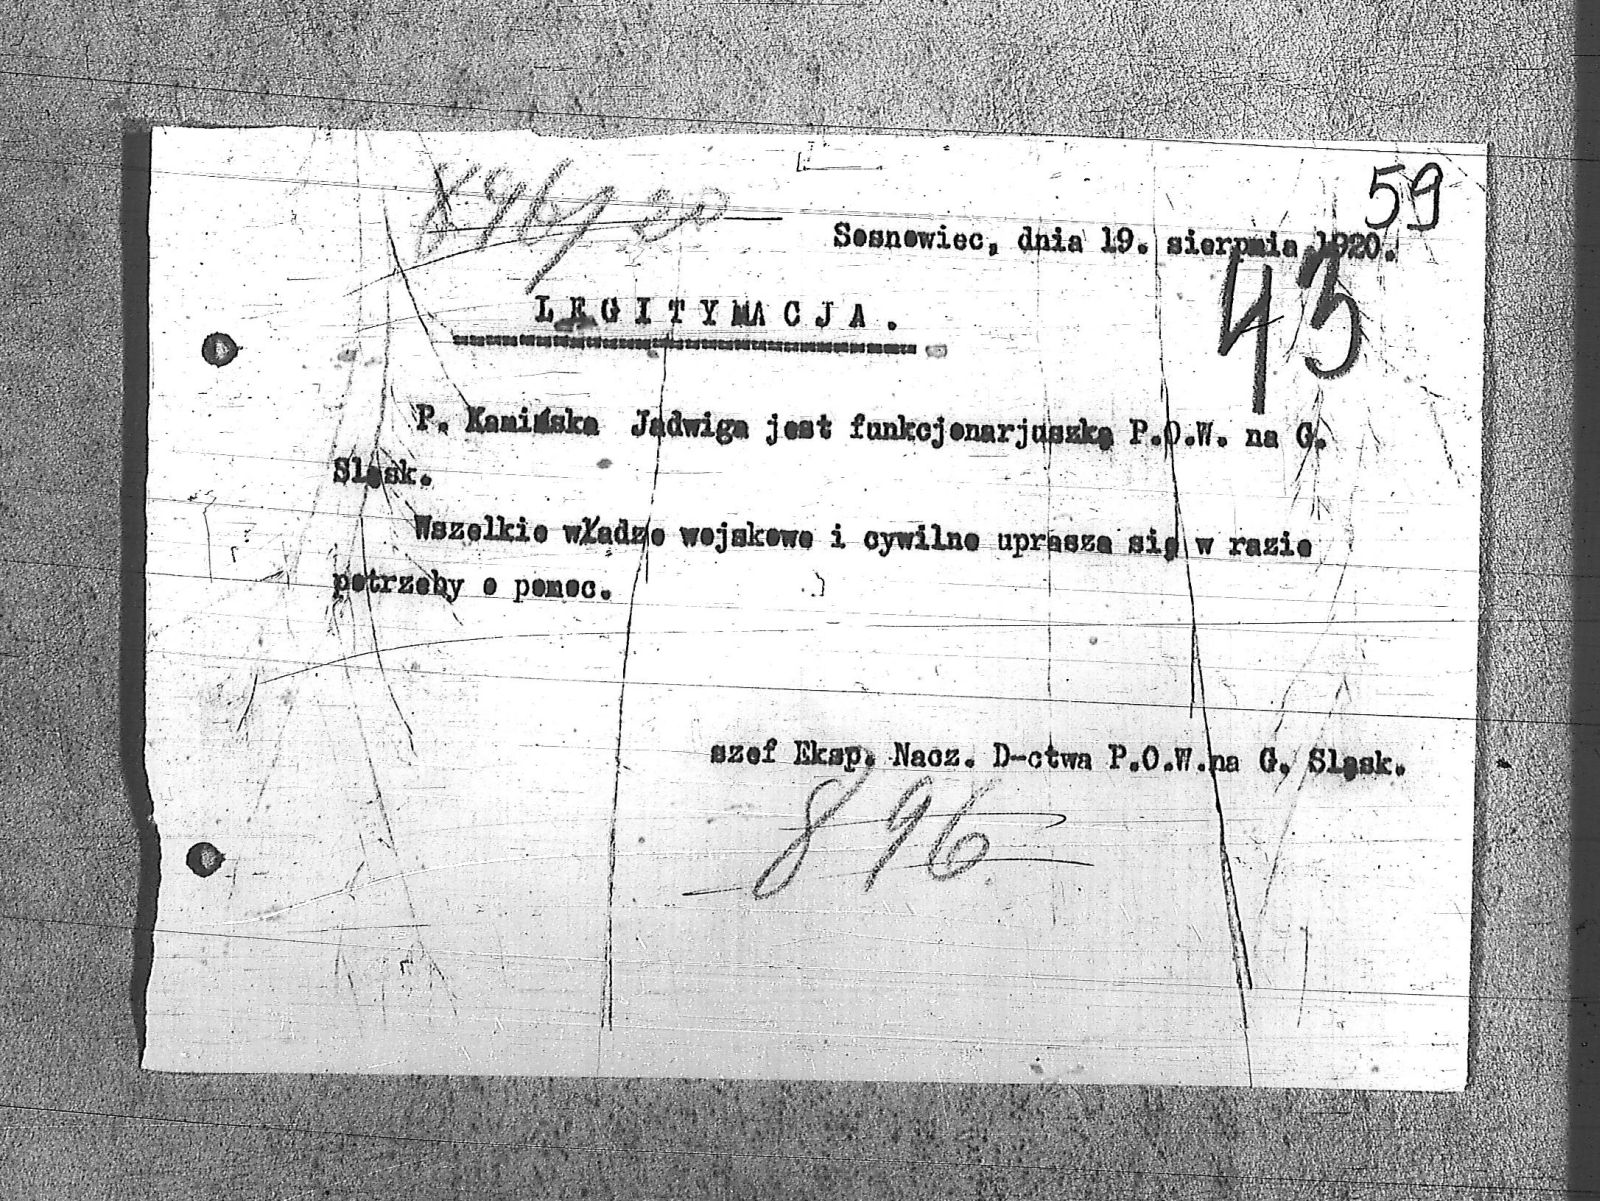 59
896/20
Sosnowiec, dnia 19. sierpnia 1920.
43
LEGITYMACJA.
P. Kamińska Jadwiga jest funkcjonarjuszką P.O.W. na G.
Śląsk.
Wszelkie władze wojskowe i cywilne uprasza się w razie
potrzeby o pomoc.
szef Eksp. Nacz. D-ctwa P.O.W.na G. Śląsk.
896